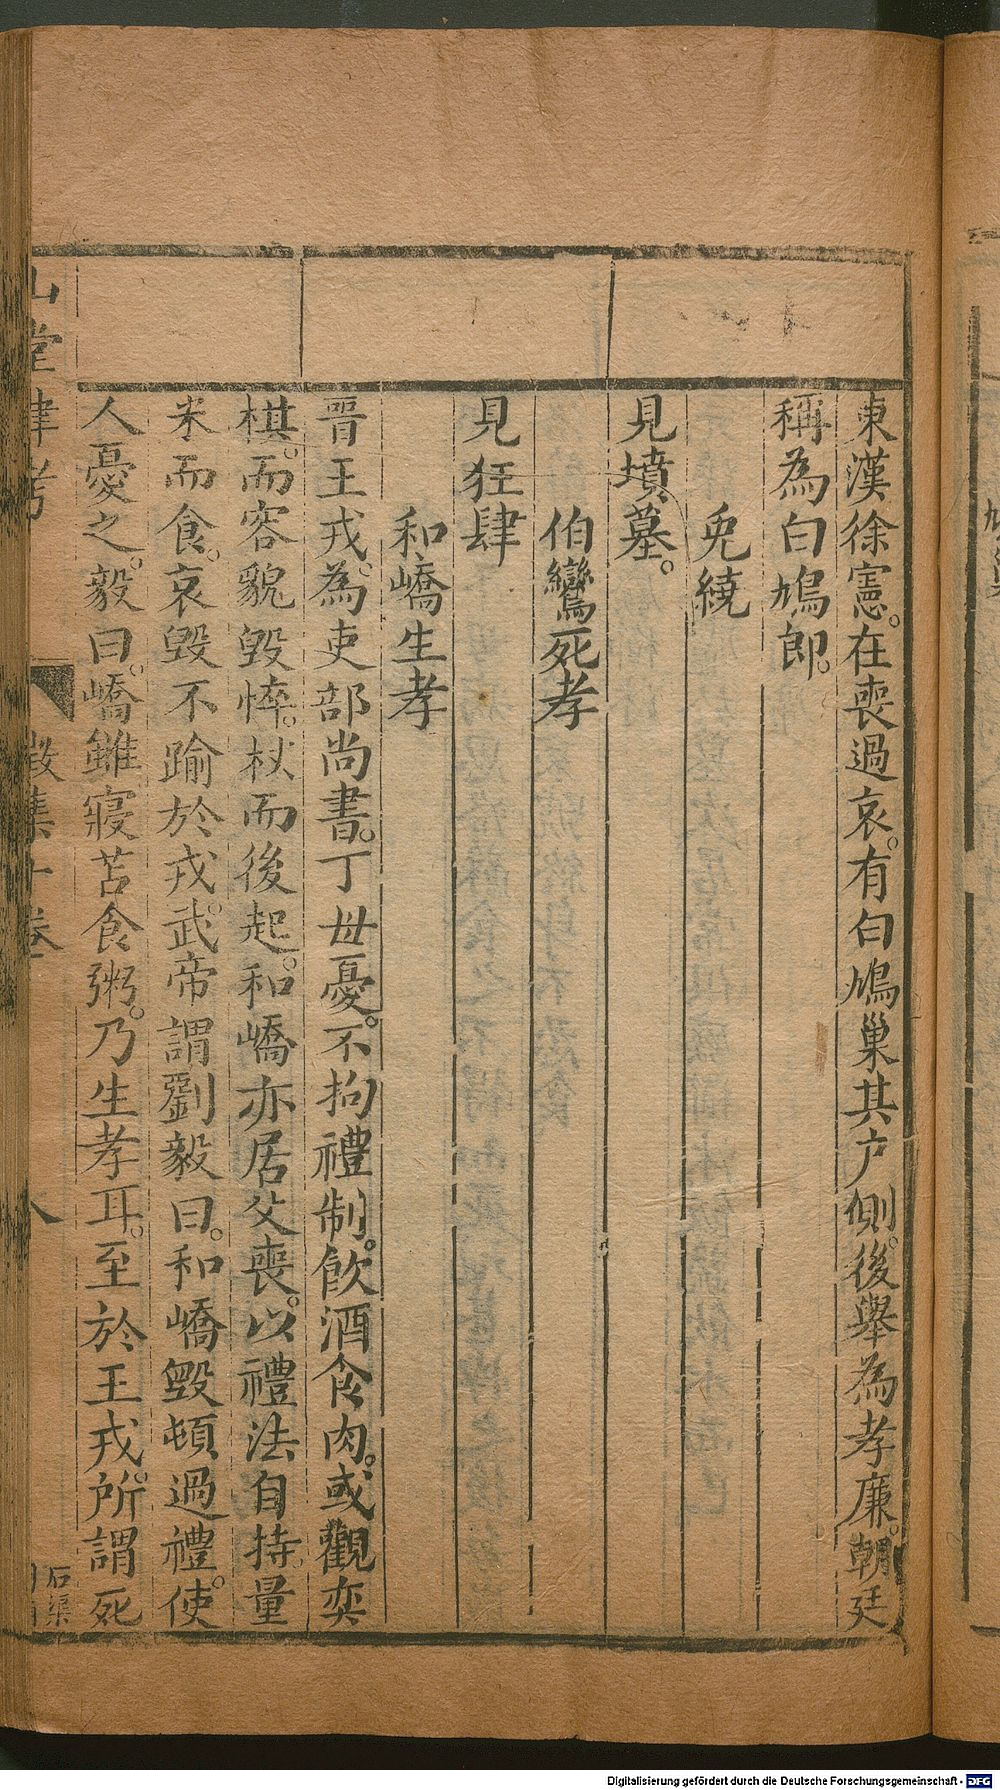 東漢徐憲。在喪過哀。有白鳩巢其户側。後舉為孝廉。朝廷
稱為白鳩郎。
兎繞
見墳墓。
伯鸞死孝
見狂肆
和嶠生孝
晋王戎。為吏部尚書。丁母憂。不拘禮制。飲酒食肉。或觀奕
棋。而容貌毀悴。杖而後起。和嶠亦居父喪。以禮法自持。量
米而食。哀毀不踰於戎。武帝謂劉毅曰。和嶠毀頓過禮。使
人憂之。毅曰。嶠雖寢苫食粥。乃生孝耳。至於王戎。所謂死
山堂肆考
卷
八
石渠
Digitalisierung gefördert durch die Deutsche Forschungsgemeinschaft - DFG